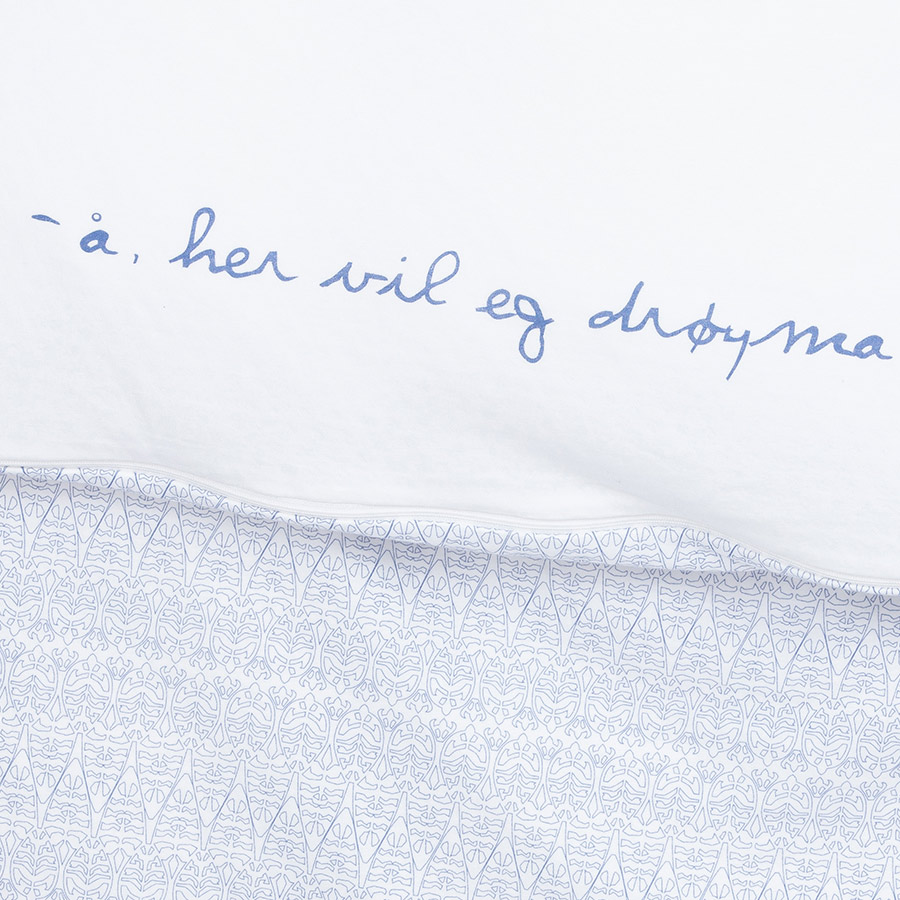 - å, her vil eg drøyma